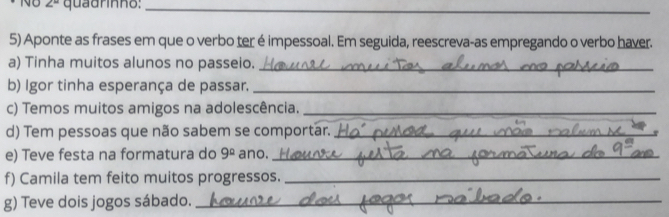 • No 2º quadrinho:
5) Aponte as frases em que o verbo ter é impessoal. Em seguida, reescreva-as empregando o verbo haver.
a) Tinha muitos alunos no passeio. Houve muitos alunos no passeio
b) Igor tinha esperança de passar.
c) Temos muitos amigos na adolescência.
d) Tem pessoas que não sabem se comportar. Há pessoas que não
e) Teve festa na formatura do 9º ano. Houve festa na formatura do 9º ano
f) Camila tem feito muitos progressos.
g) Teve dois jogos sábado. houve dois jogos sábado.